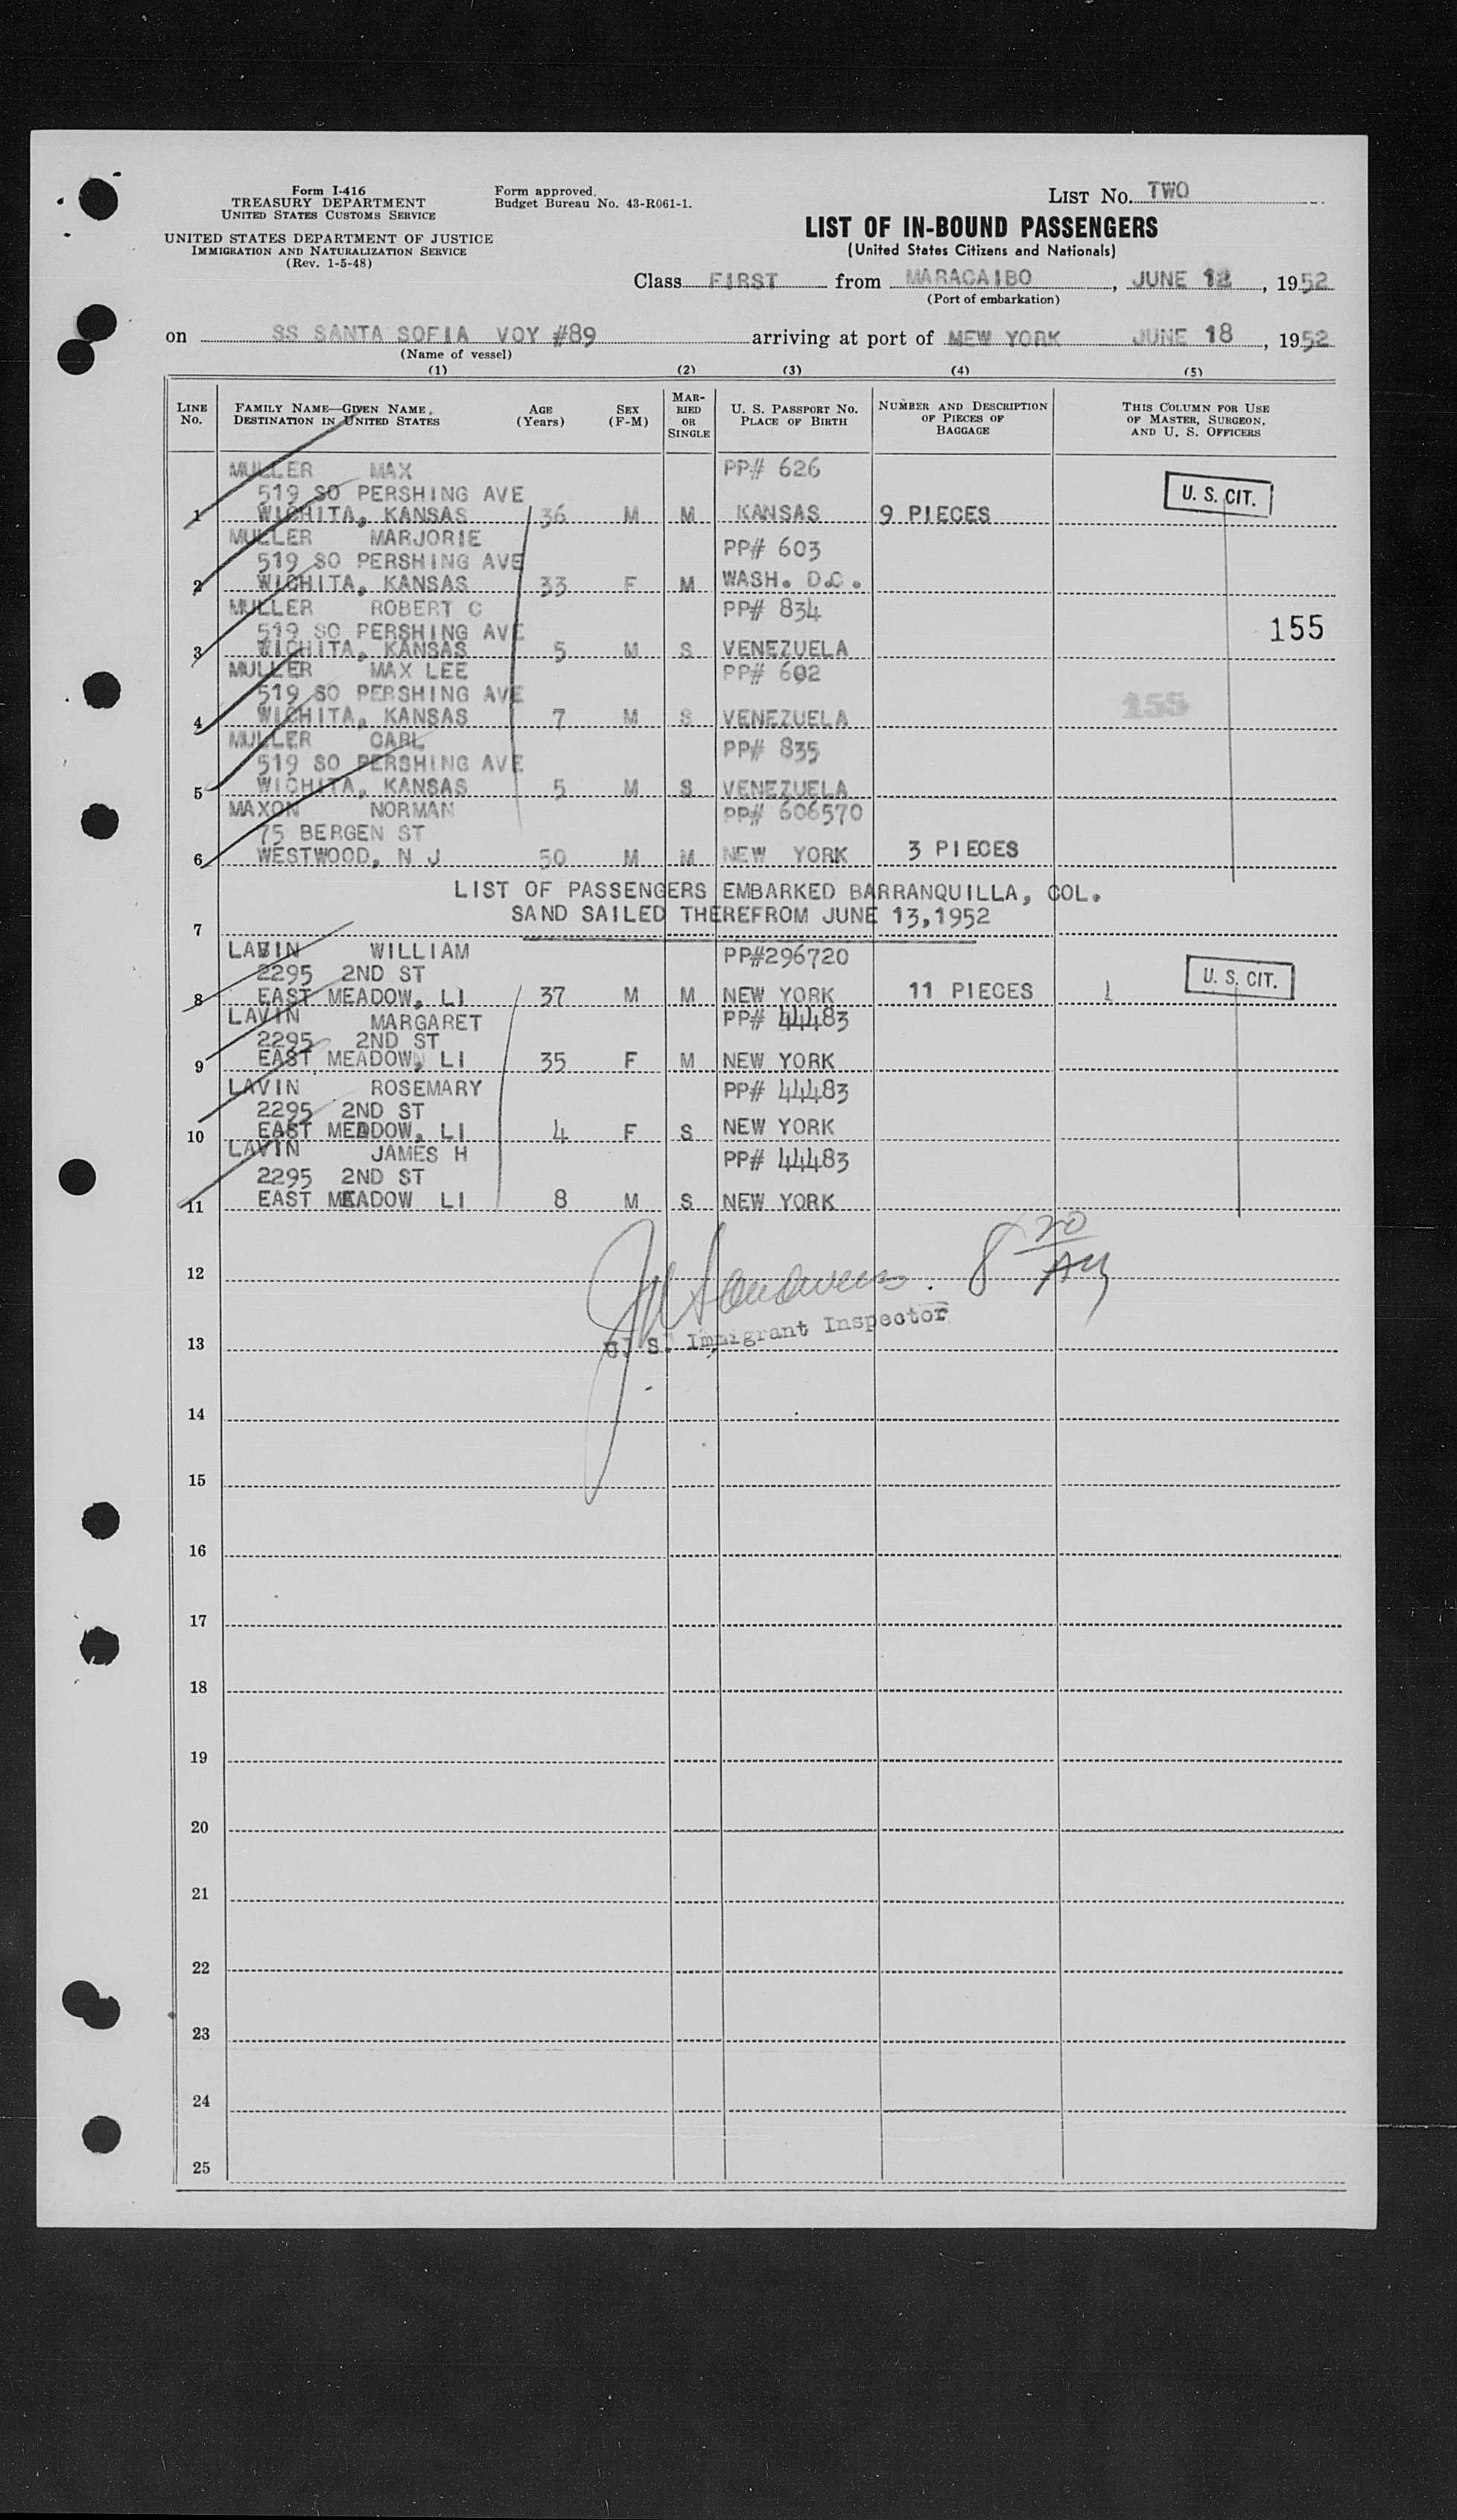 Form I-416
TREASURY DEPARTMENT
UNITED STATES CUSTOMS SERVICE
UNITED STATES DEPARTMENT OF JUSTICE
IMMIGRATION AND NATURALIZATION SERVICE
(Rev. 1-5-48)
Form approved.
Budget Bureau No. 43-R061-1.
LIST NO. TWO
LIST OF IN-BOUND PASSENGERS
(United States Citizens and Nationals)
Class FIRST from MARACAIBO, JUNE 12, 1952
(Port of embarkation)
on SS SANTA SOFIA VOY #89 arriving at port of MEW YORK JUNE 18, 1952
(Name of vessel)
(1) (2) (3) (4) (5)
LINE NO.
FAMILY NAME—GIVEN NAME,
DESTINATION IN UNITED STATES
AGE
(Years)
SEX
(F-M)
MAR-
RIED
OR
SINGLE
U. S. PASSPORT NO.
PLACE OF BIRTH
NUMBER AND DESCRIPTION
OF PIECES OF
BAGGAGE
THIS COLUMN FOR USE
OF MASTER, SURGEON,
AND U. S. OFFICERS
MULLER MAX PP# 626
519 SO PERSHING AVE U. S. CIT.
1 WICHITA, KANSAS 36 M M KANSAS 9 PIECES
MULLER MARJORIE PP# 603
519 SO PERSHING AVE
2 WICHITA, KANSAS 33 F M WASH. D.C.
MULLER ROBERT C PP# 834
519 SO PERSHING AVE 155
3 WICHITA, KANSAS 5 M S VENEZUELA
MULLER MAX LEE PP# 602
519 SO PERSHING AVE 155
4 WICHITA, KANSAS 7 M S VENEZUELA
MULLER CARL PP# 835
519 SO PERSHING AVE
5 WICHITA, KANSAS 5 M S VENEZUELA
MAXON NORMAN PP# 606570
75 BERGEN ST
6 WESTWOOD, N J 50 M M NEW YORK 3 PIECES
LIST OF PASSENGERS EMBARKED BARRANQUILLA, COL.
SAND SAILED THEREFROM JUNE 13,1952
7
LAVIN WILLIAM PP#296720
2295 2ND ST U. S. CIT.
8 EAST MEADOW, LI 37 M M NEW YORK 11 PIECES 1
LAVIN MARGARET PP# 44483
2295 2ND ST
9 EAST MEADOW, LI 35 F M NEW YORK
LAVIN ROSEMARY PP# 44483
2295 2ND ST
10 EAST MEADOW, LI 4 F S NEW YORK
LAVIN JAMES H PP# 44483
2295 2ND ST
11 EAST MEADOW LI 8 M S NEW YORK
8 20 AM
12
U. S. Immigrant Inspector
13
14
15
16
17
18
19
20
21
22
23
24
25